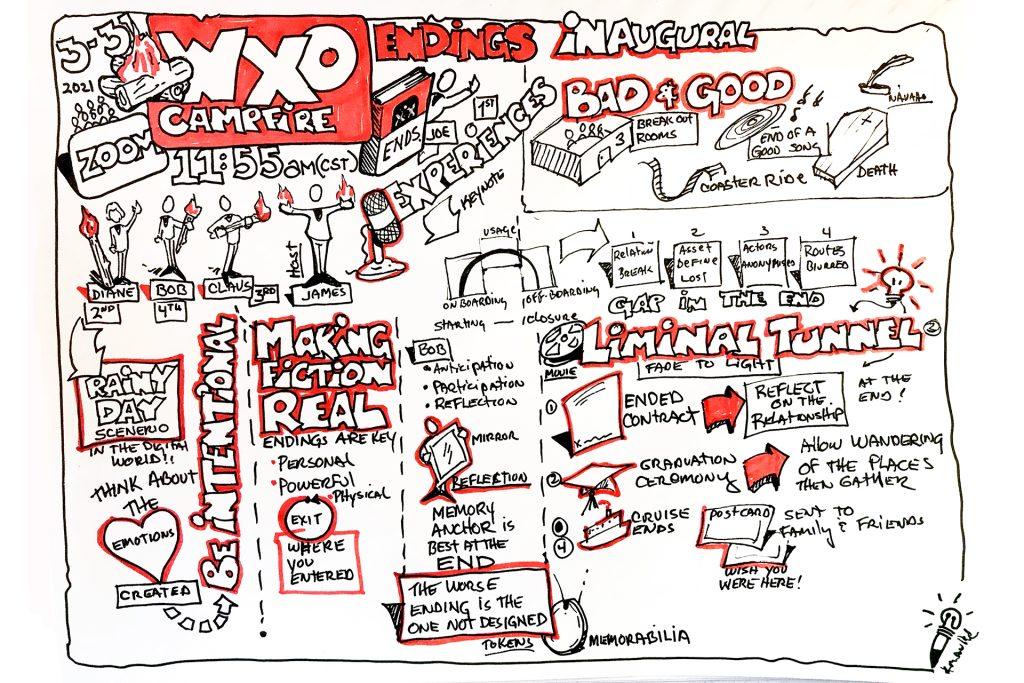 3-3
2021
WXO
CAMPFIRE
ZOOM
11:55 am (CST)
ENDINGS
EXPERIENCES
INAUGURAL
ENDS
JOE
1ST
KEYNOTE
BAD & GOOD
3
BREAK OUT
ROOMS
COASTER RIDE
END OF A
GOOD SONG
DEATH
DIANE
2ND
BOB
4TH
CLAUS
3RD
HOST
JAMES
USAGE
ON BOARDING
OFF-BOARDING
STARTING — CLOSURE
1
RELATION
BREAK
2
ASSET
DEFINE
LOST
3
ACTORS
ANONYMISED
4
ROUTES
BLURRED
GAP IN THE END
RAINY
DAY
SCENERIO
IN THE DIGITAL
WORLD!!
THINK ABOUT
THE
EMOTIONS
CREATED
BE INTENTIONAL
MAKING
FICTION
REAL
ENDINGS ARE KEY
• PERSONAL
• POWERFUL
• PHYSICAL
EXIT
WHERE
YOU
ENTERED
BOB
• ANTICIPATION
• PARTICIPATION
• REFLECTION
MIRROR
REFLECTION
MEMORY
ANCHOR IS
BEST AT THE
END
THE WORSE
ENDING IS THE
ONE NOT DESIGNED
TOKENS
MEMORABILIA
MOVIE
LIMINAL TUNNEL
2
FADE TO LIGHT
AT THE
END!
1
ENDED
CONTRACT
REFLECT
ON THE
RELATIONSHIP
2
GRADUATION
CEREMONY
ALLOW WANDERING
OF THE PLACES
THEN GATHER
4
CRUISE
ENDS
POSTCARD
SENT TO
FAMILY & FRIENDS
WISH YOU
WERE HERE!